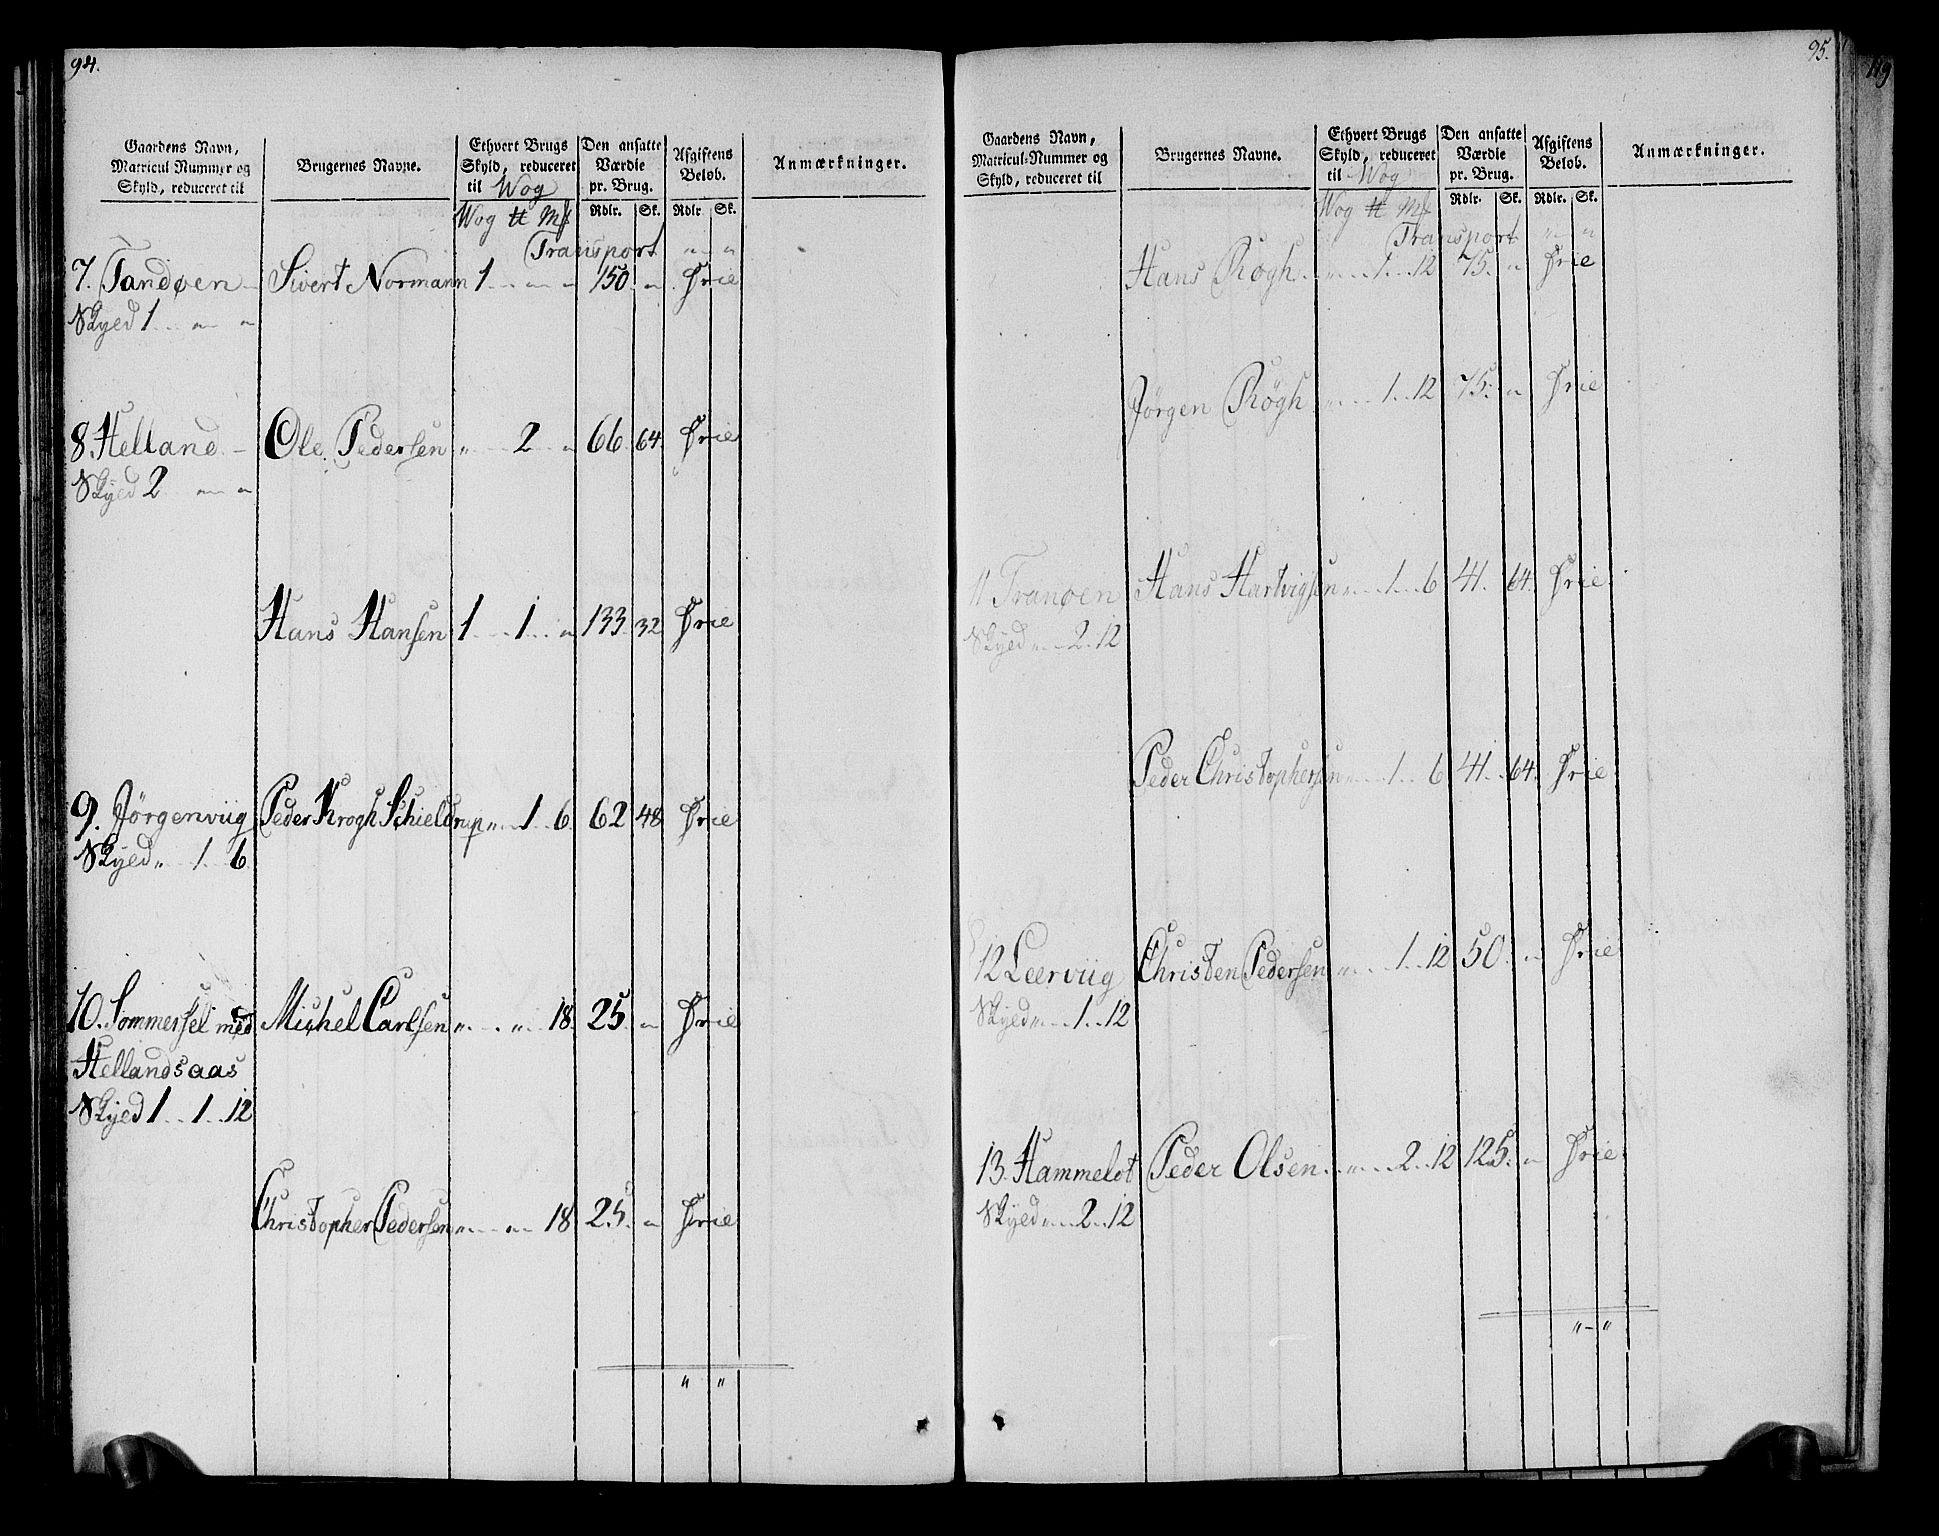 94.
Gaardens Navn, Matricul Nummer og Skyld, reduceret til
Brugernes Navne.
Ethvert Brugs Skyld, reduceret til Wog
Den ansatte Værdie pr. Brug.
Afgiftens Beløb.
Anmærkninger.
Wog ℔ Mk Rdlr. Sk. Rdlr Sk.
Transport " "
7. Tandøen Sivert Normann 1 " " 150 " Frie
Skyld 1 " "
8. Helland Ole Pedersen " 2 " 66. 64. Frie
Skyld 2 " "
Hans Hansen 1 1 " 133 32 Frie
9. Jørgenviig Peder Krogh Schieldrup " 1 6 62 48 Frie
Skyld " 1 6
10. Sommersel med Michel Carlsen " " 18 25 " Frie
Hellandsaas
Skyld 1 1 12
Christopher Pedersen " " 18 25. " Frie
" "
95.
119
Gaardens Navn, Matricul-Nummer og Skyld, reduceret til
Brugernes Navne.
Ethvert Brugs Skyld, reduceret til Wog
Den ansatte Værdie pr. Brug.
Afgiftens Beløb.
Anmærkninger.
Wog ℔ Mk Rdlr. Sk. Rdlr. Sk.
Transport " "
Hans Røgh " 1 12 75. " Frie
Jørgen Røgh " 1 12 75. " Frie
11 Tranøen Hans Hartvigsen " 1 6 41. 64. Frie
Skyld " 2 12
Peder Christophersen " 1 6 41. 64. Frie
12 Leerviig Christen Pedersen " 1 12 50. " Frie
Skyld " 1 12
13. Hammelot Peder Olsen " 2 12 125. " Frie
Skyld " 2 12
" - "